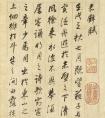 赤壁賦
壬戌之秋七月既望蘇子與
客泛舟遊於赤壁之下清
風徐來水波不興舉酒
屬客誦明月之詩歌窈窕
之章少焉月出於東山之
上徘徊於斗牛之間白露